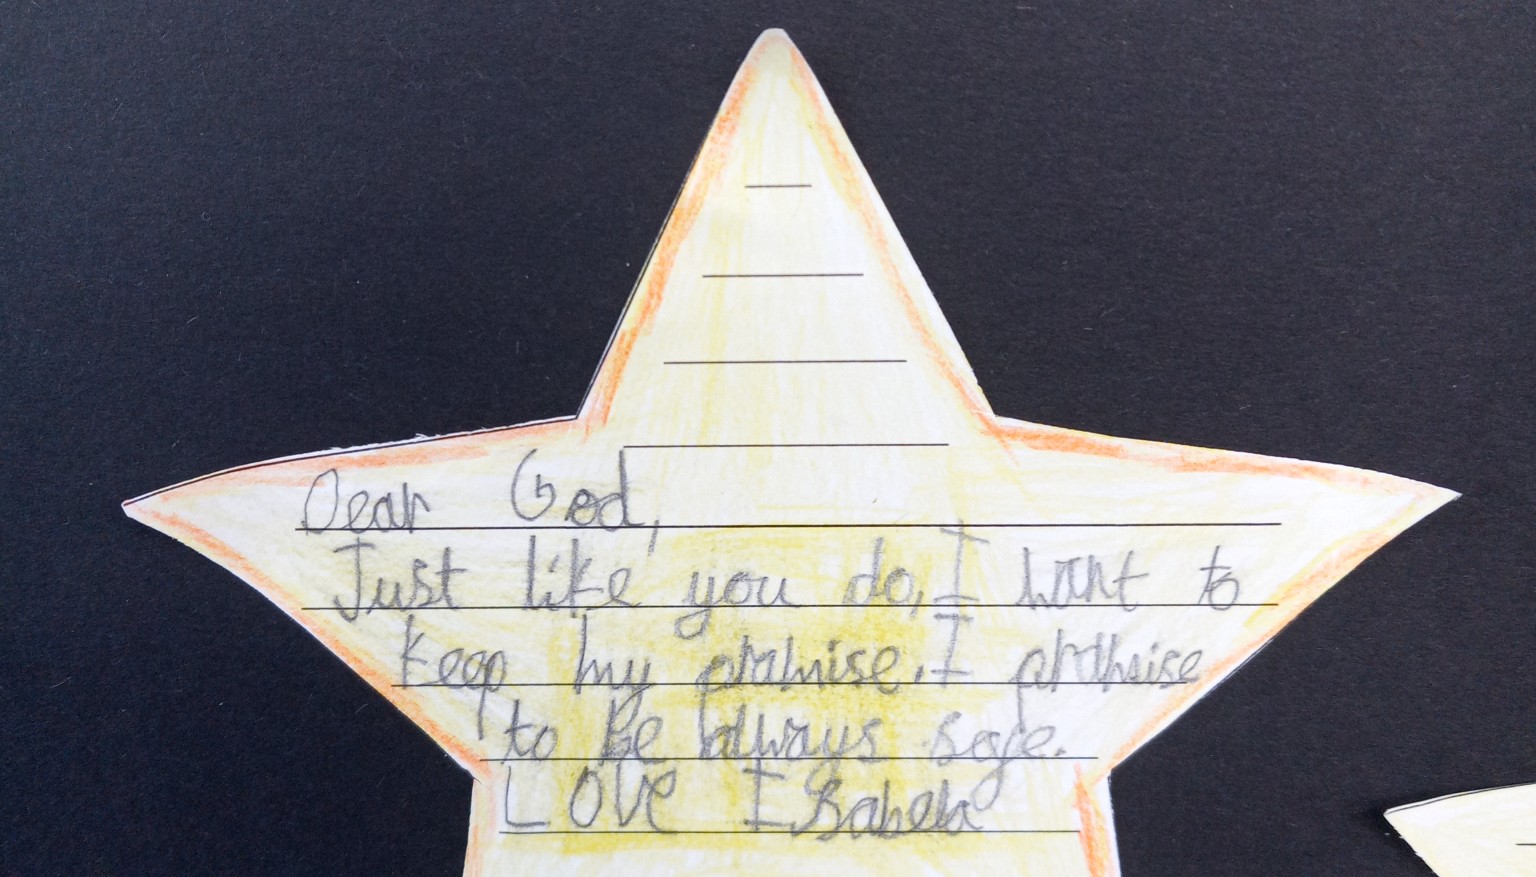 Dear God,
Just like you do, I want to
keep my promise. I promise
to be always safe.
Love Isabela